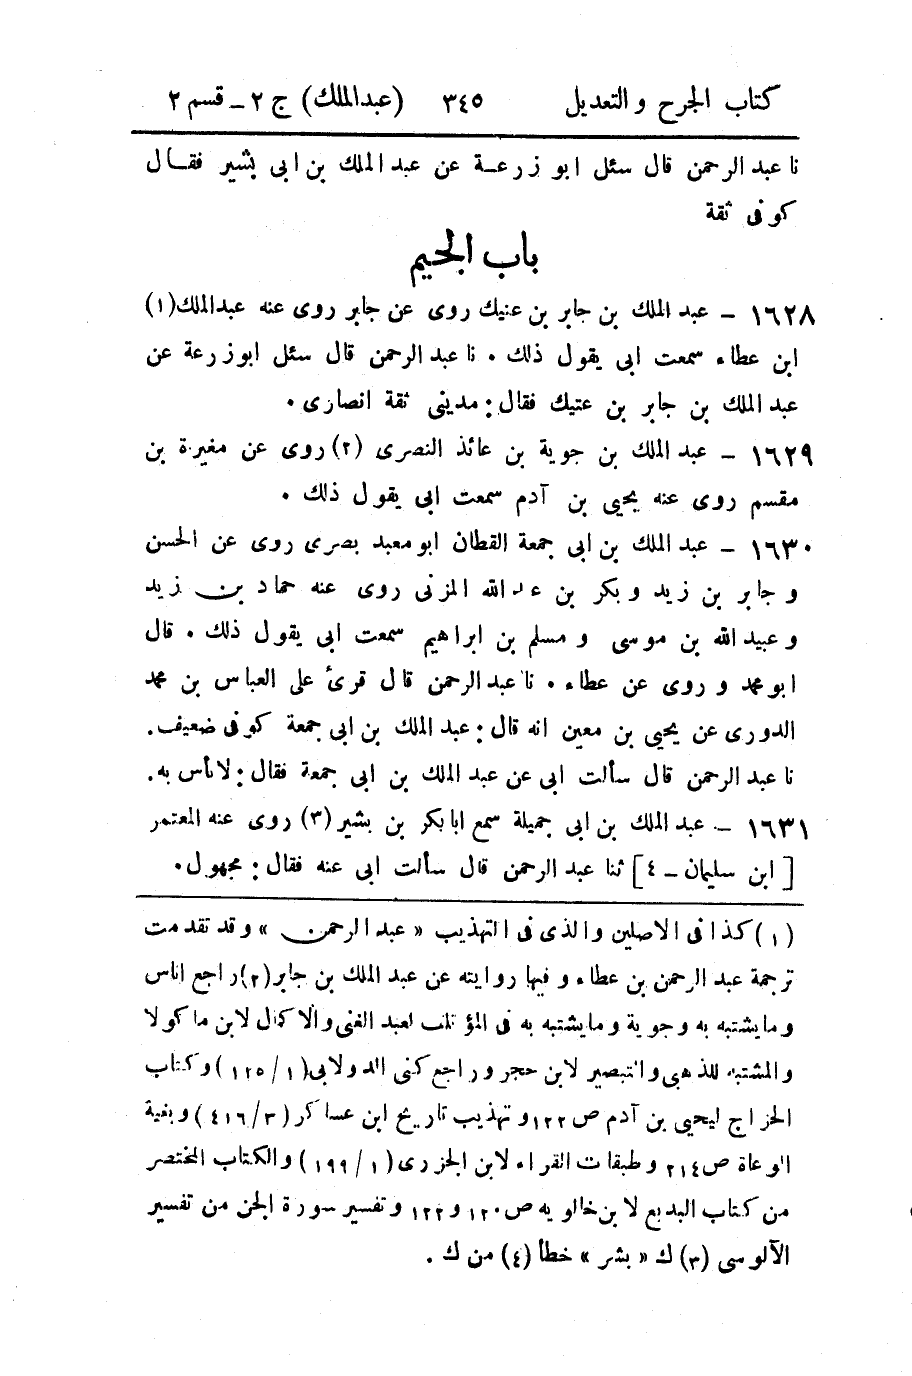 كتاب الجرح والتعديل ٣٤٥ (عبدالملك) ج ٢ - قسم ٢
نا عبد الرحمن قال سئل ابو زرعة عن عبد الملك بن ابى بشير فقال
كوفى ثقة
باب الجيم
١٦٢٨ - عبد الملك بن جابر بن عتيك روى عن جابر روى عنه عبدالملك(١)
ابن عطاء سمعت ابى يقول ذلك . نا عبد الرحمن قال سئل ابوزرعة عن
عبد الملك بن جابر بن عتيك فقال : مدينى ثقة انصارى .
١٦٢٩ - عبد الملك بن جوية بن عائذ النصرى (٢) روى عن مغيرة بن
مقسم روى عنه يحيى بن آدم سمعت ابى يقول ذلك .
١٦٣٠ - عبد الملك بن ابى جمعة القطان ابو معبد بصرى روى عن الحسن
وجابر بن زيد وبكر بن عبد الله المزنى روى عنه حماد بن زيد
وعبيد الله بن موسى ومسلم بن ابراهيم سمعت ابى يقول ذلك . قال
ابو محمد وروى عن عطاء . نا عبد الرحمن قال قرئ على العباس بن محمد
الدورى عن يحيى بن معين انه قال : عبد الملك بن ابى جمعة كوفى ضعيف .
نا عبد الرحمن قال سألت ابى عن عبد الملك بن ابى جمعة فقال : لا بأس به .
١٦٣١ - عبد الملك بن ابى جميلة سمع ابا بكر بن بشير (٣) روى عنه المعتمر
[ ابن سليمان - ٤] ثنا عبد الرحمن قال سألت ابى عنه فقال : مجهول .
(١) كذا فى الاصلين والذى فى التهذيب « عبد الرحمن » وقد تقدمت
ترجمة عبد الرحمن بن عطاء وفيها روايته عن عبد الملك بن جابر (٢) راجع اناس
وما يشتبه به وجوية وما يشتبه به فى المؤتلف لعبد الغنى والاكمال لابن ماكولا
والمشتبه للذهبى والتبصير لابن حجر وراجع كنى الدولابى (١/ ١٢٥) وكتاب
الخراج ليحيى بن آدم ص ١٢٢ وتهذيب تاريخ ابن عساكر (٣/ ٤١٦) وبغية
الوعاة ص ٢١٤ وطبقات القراء لابن الجزرى (١/ ١٩٩) والكتاب المختصر
من كتاب البديع لابن خالويه ص ١٢٠ و ١٢٢ وتفسير سورة الجن من تفسير
الآلوسى (٣) ك « بشر » خطأ (٤) من ك .